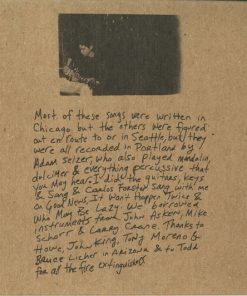 Most of these songs were written in
Chicago but the others were figured
out en route to or in Seattle, but they
were all recorded in Portland by
Adam Selzer, who also played mandolin,
dolcimer & everything percussive that
you May hear. I did the guitars, keys
& Sang & Carlos Forster Sang with me
on Good News, It Won't Happen Twice &
Who May Be Lazy. We borrowed
instruments from John Askew, Mike
Schorr & Larry Crane. Thanks to
Howe, John King, Tony Moreno &
Bruce Licher in Arizona & to Todd
for all the fire extinguishers